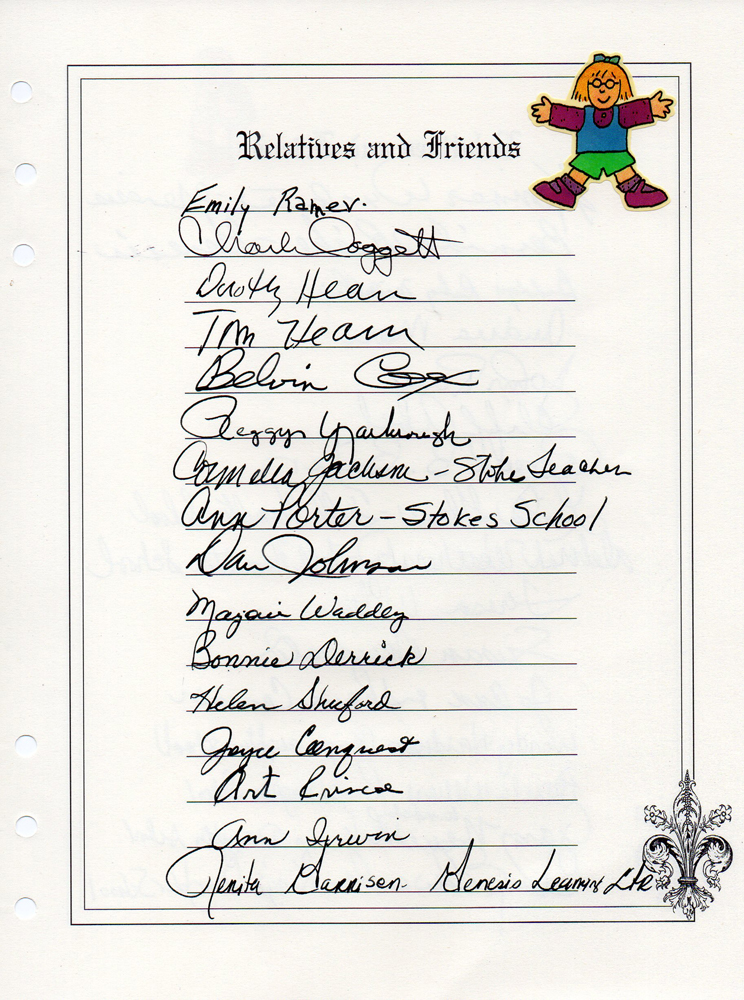 Relatives and Friends
Emily Ramey.
Charle Doggett
Dorothy Hearn
Tom Hearn
Belvin Cox
Peggy Yarbrough
Carmella Jackson - Stokes Teacher
Ann Porter - Stokes School
Dan Johnson
Marjorie Waddey
Bonnie Derrick
Helen Shuford
Joyce Conquest
Art Briscoe
Ann Irwin
Renita Garrison - Genesis Learning Ctr